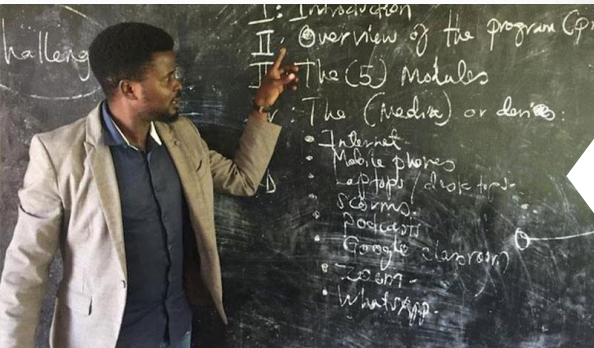 Challeng
I: Introduction
II: Overview of the program (pr
The (5) Modules
: The (Media) or devices:
• Internet
• Mobile phones
• Laptops / desktops.
• scorms.
• podcasts
• Google classroom
• Zoom.
• WhatsApp.